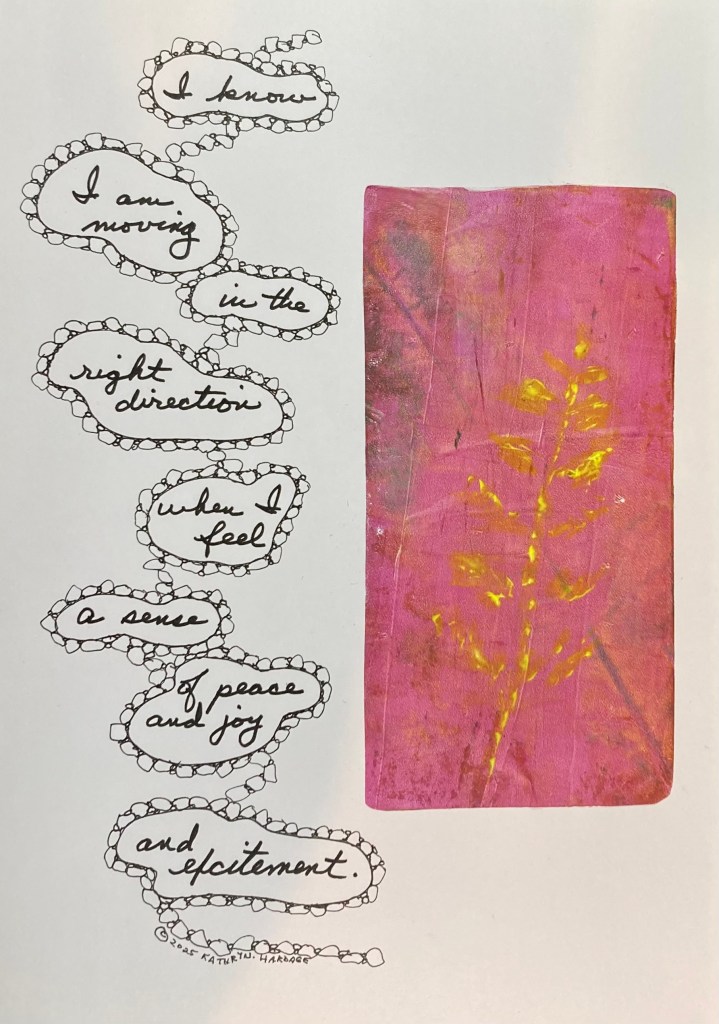 I know
I am
moving
in the
right
direction
when I
feel
a sense
of peace
and joy
and
excitement.
© 2025 KATHRYN. HARDAGE